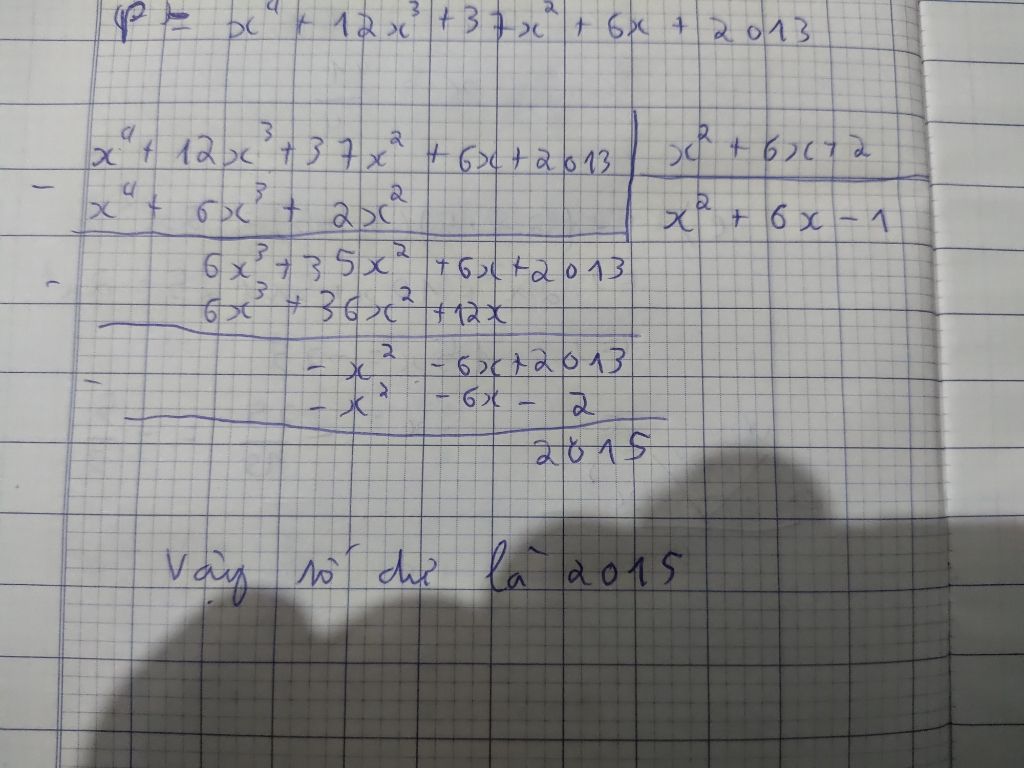 P = x⁴ + 12x³ + 37x² + 6x + 2013
x⁴ + 12x³ + 37x² + 6x + 2013 | x² + 6x + 2
- x⁴ + 6x³ + 2x² | x² + 6x - 1
6x³ + 35x² + 6x + 2013
- 6x³ + 36x² + 12x
- x² - 6x + 2013
- - x² - 6x - 2
2015
Vậy số dư là 2015